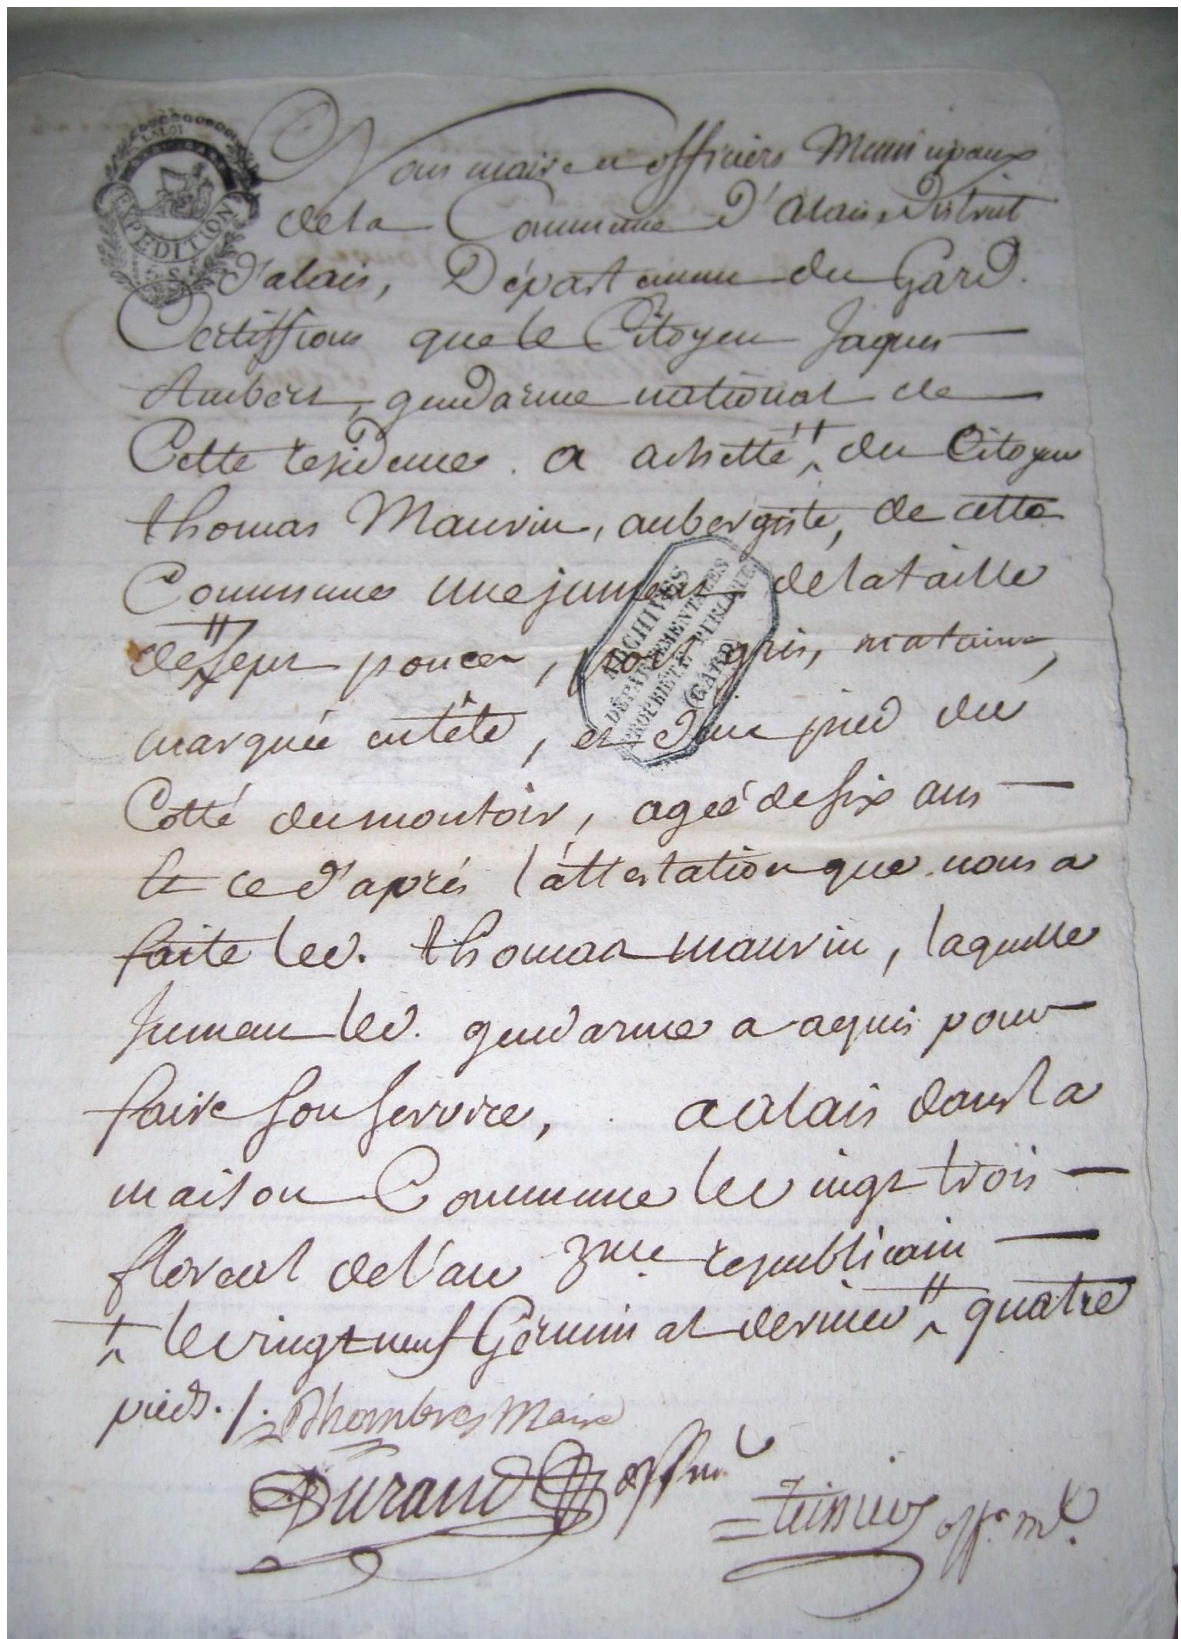 LA LOI
EXPEDITION
Nous maire et officiers Municipaux
de la Commune D'Alais, District
d'alais, Département du Gard.
Certiffions que le Citoyen Jaques
Aubert, gendarme national de
Cette residence a achetté " du Citoyen
thomas Maurin, aubergiste, de cette
Commune une jument de la taille
de " sept pouces, poil gris,
marquée en tête, et d'un pied du
Cotté du montoir, ageé de six ans
Et ce d'aprés l'attestation que nous a
faite led. thomas maurin, laquelle
Jumean led. gendarme a aquis pour
faire son service, a alais dans la
maison Commune le vingt trois
floreal de l'an 3me republicain
le vingt neuf Gérminal dernier " quatre
pieds ./.
Dhombres Maire
Durand off mal
teissier offr. ml.
ARCHIVES
DÉPARTEMENTALES
PROPRIÉTÉ PUBLIQUE
(GARD)